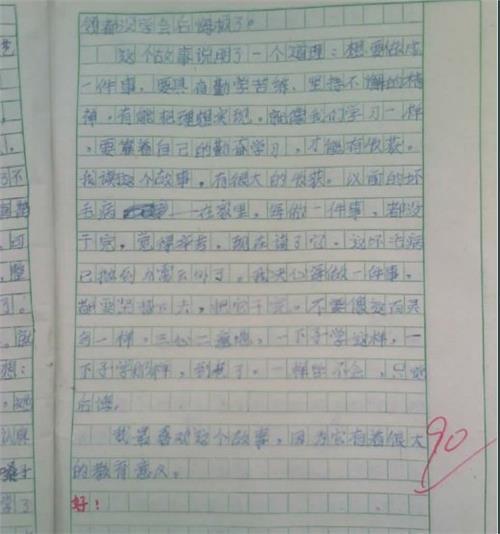 领都没学会后悔极了。
这个故事说明了一个道理：想要做成
一件事，要具有勤学苦练、坚持不懈的精
神，有能把理想实现。就像我们学习一样
，要靠着自己的勤奋学习，才能有收获。
我读这个故事，有很大的收获。以前的坏
毛病 一在家里，每做一件事，都没
干完，觉得辛苦，现在读了它，这坏毛病
已抛到九霄云外了。我决心每做一件事，
都要坚持下去，把它干完。不要像
鸟一样，三心二意地，一下子学这样，一
下子学那样，到 了，一样 不会，只
后悔。
我最喜欢这个故事，因为它有着很大
的教育意义。
好！
90
艺
了不
了。
想：
桑子
学了